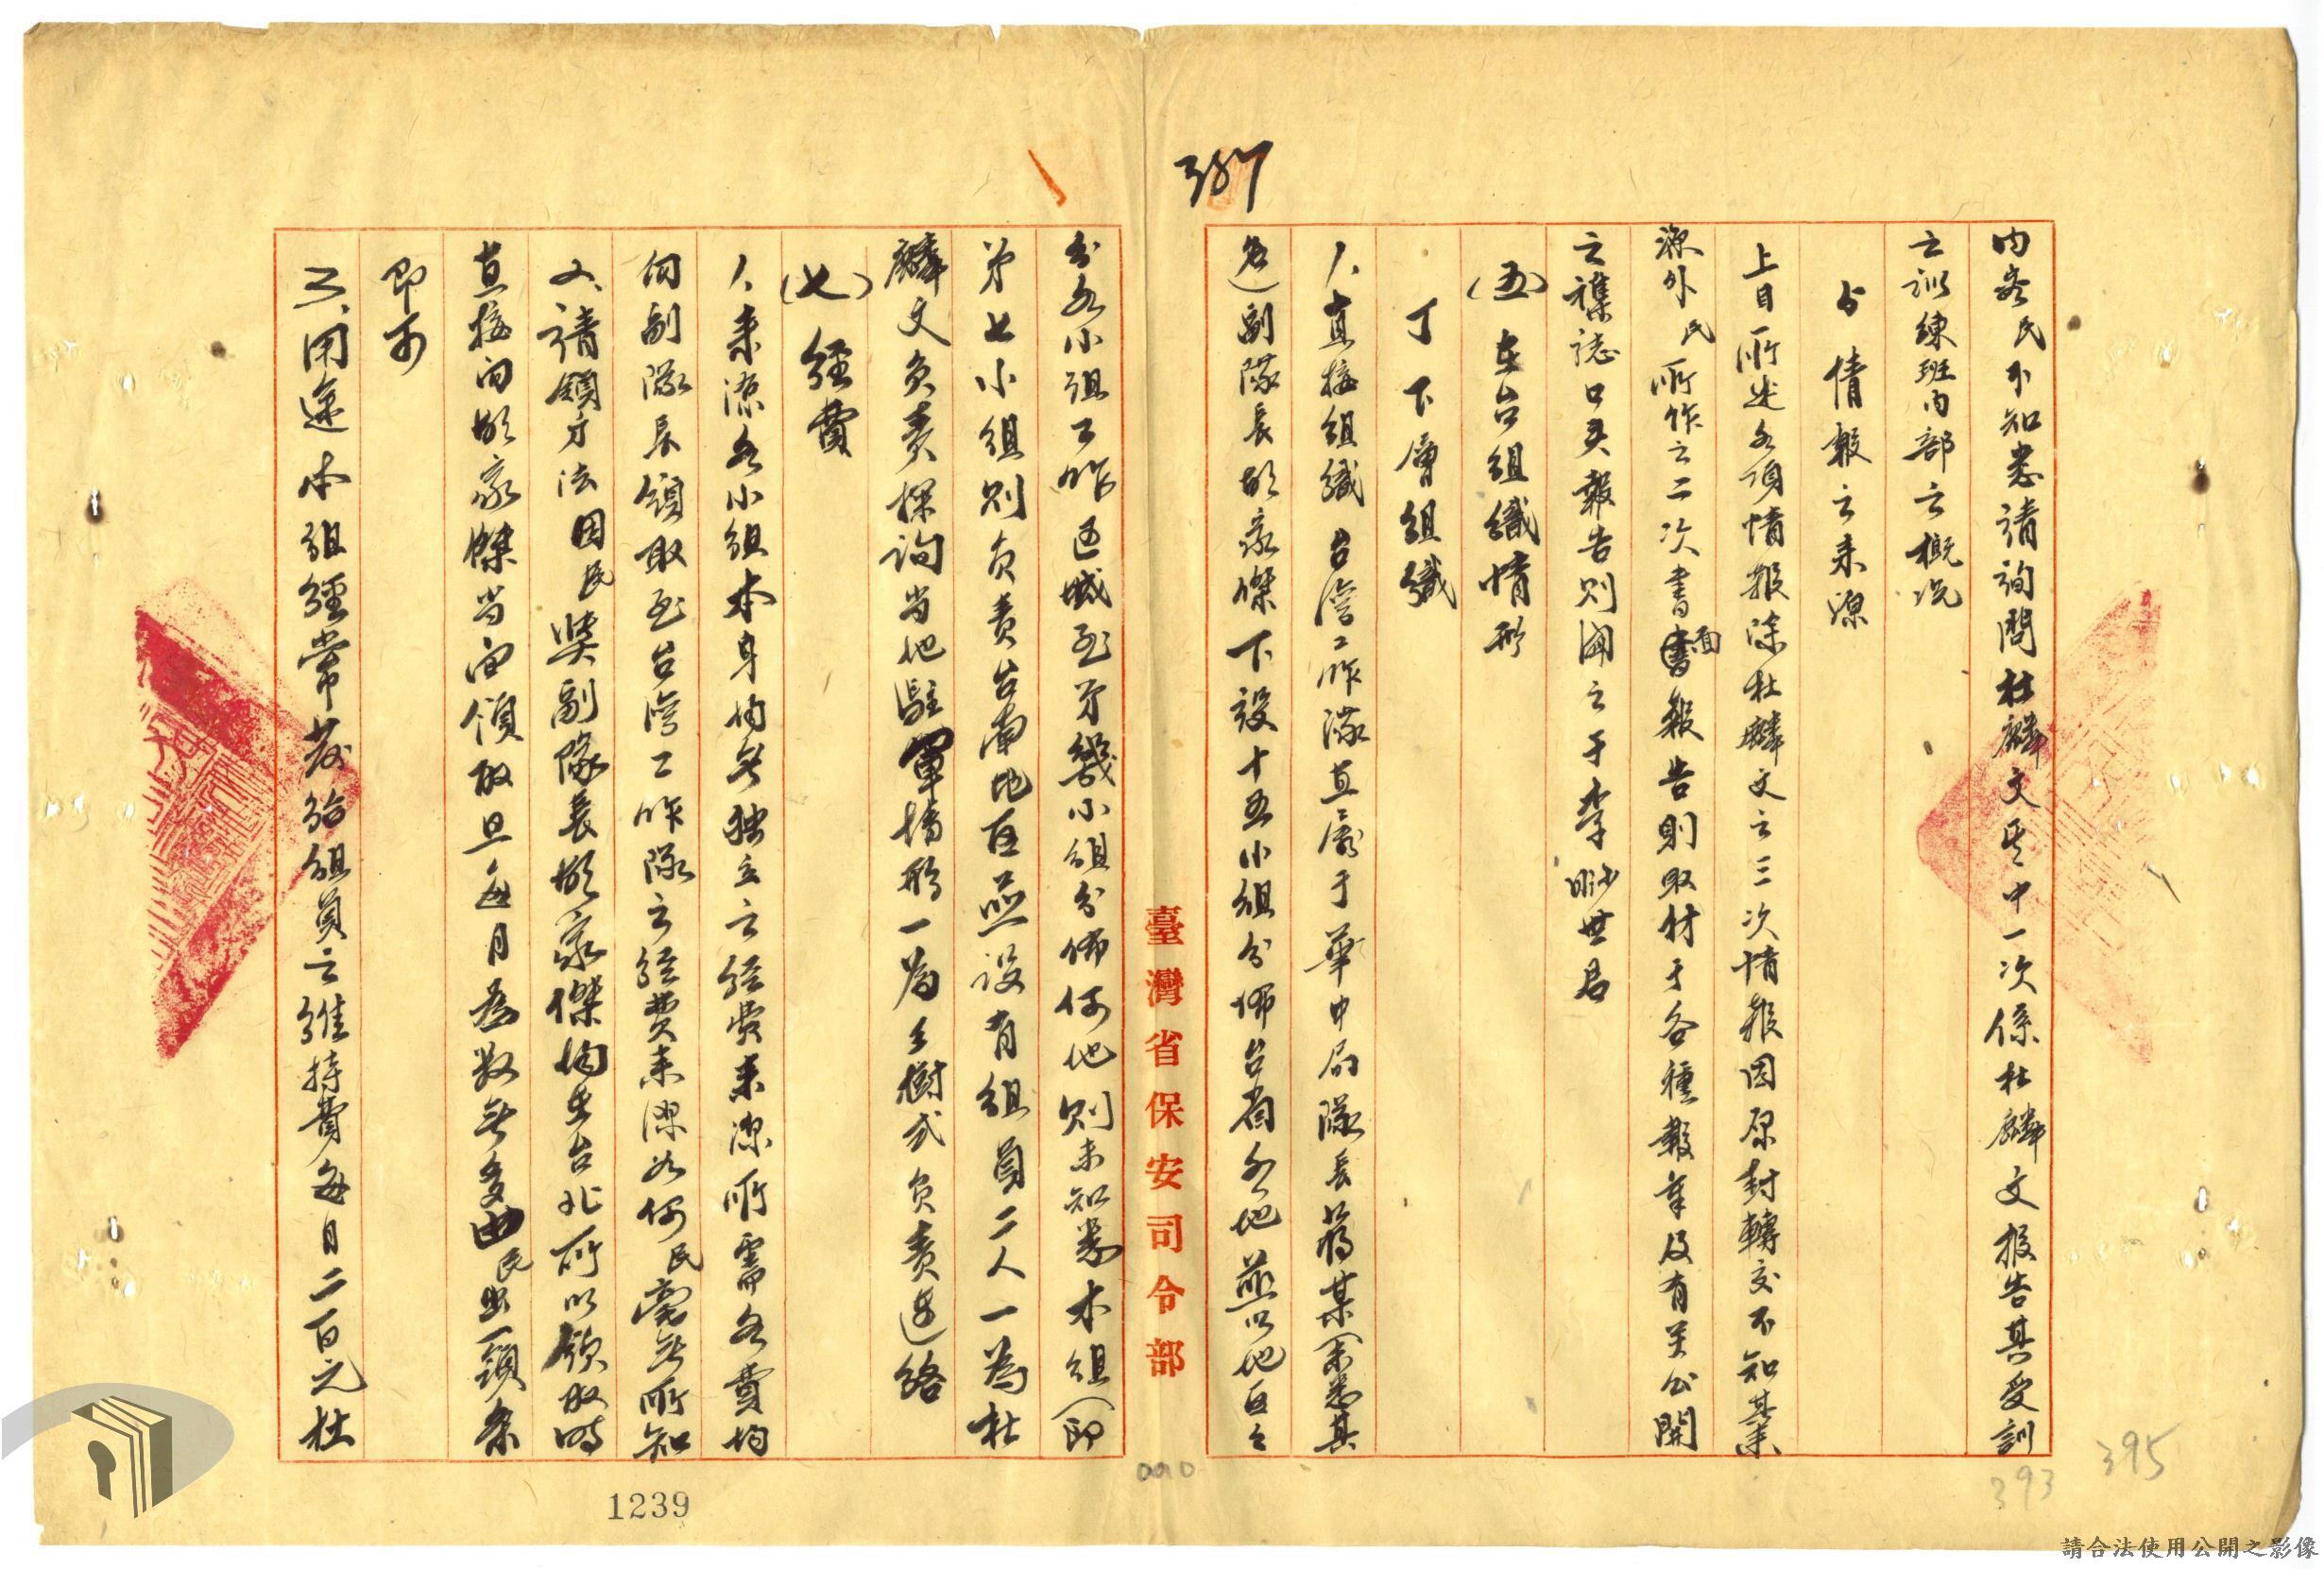 387
內容民不知悉請詢問杜麟文其中一次係杜麟文報告其受訓
之訓練班內部之概況
5 情報之來源
上目所述各項情報除杜麟文之三次情報因原封轉交不知其來
源外民所作之二次書面報告則取材于各種報章及有关公開
之襍誌口头報告則闻之于李世君
(五)在台組織情形
丁 下層組織
1、直接組織 台灣工作隊直屬于華中局隊長蔣某(未悉其
名)副隊長胡家傑下設十五小組分佈台省各地並以地區之
分各小組工作區域至第幾小組分佈何地則未知悉本組(即
第七小組則負責台南地區並設有組員二人一為杜
麟文負責探詢当地駐軍情形一為王樹武負責連絡
(七)經費
1、來源各小組本身均無独立之經費來源所需各費均
向副隊長領取至台灣工作隊之經費來源如何民毫無所知
2、請領方法因民與副隊長胡家傑均在台北所以領取時
直接向胡家傑当面領取且每月為数無多由民出一領条
即可
3、用途 本組經常發給組員之維持費每月二百元杜
臺灣省保安司令部
1239
393
395
請合法使用公開之影像